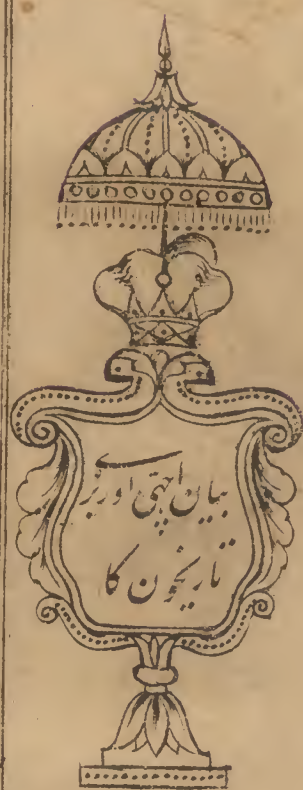 بیان اچھی اور بری
تاریخون کا